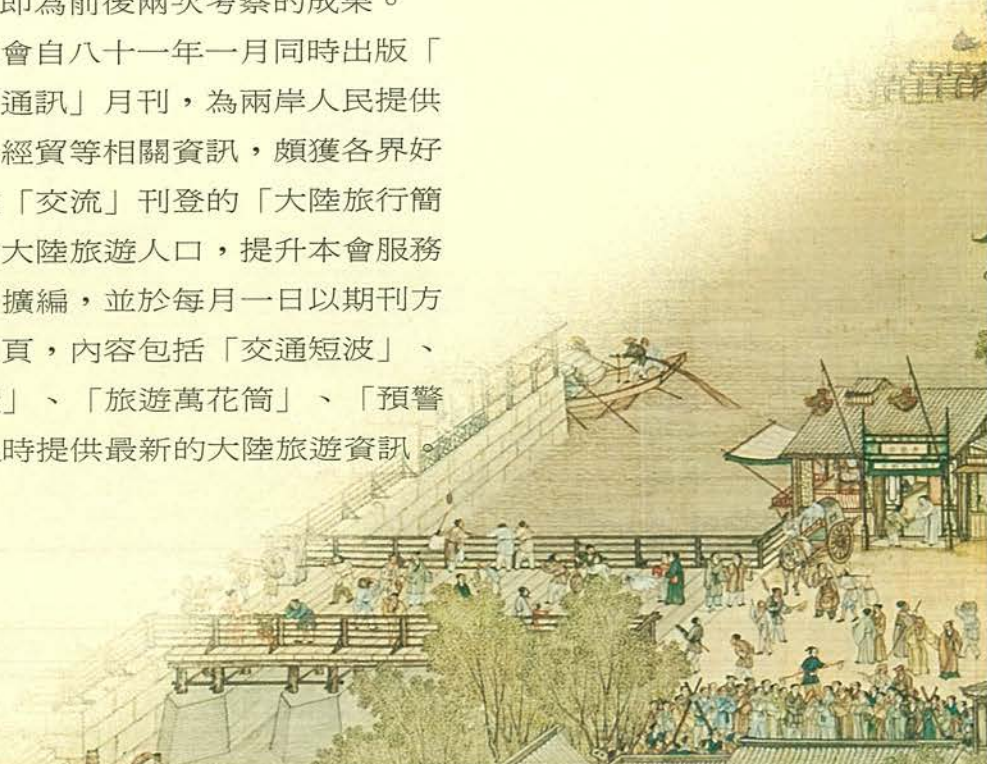 即為前後兩次考察的成果。
會自八十一年一月同時出版「
通訊」月刊，為兩岸人民提供
經貿等相關資訊，頗獲各界好
「交流」刊登的「大陸旅行簡
大陸旅遊人口，提升本會服務
擴編，並於每月一日以期刊方
頁，內容包括「交通短波」、
」、「旅遊萬花筒」、「預警
時提供最新的大陸旅遊資訊。